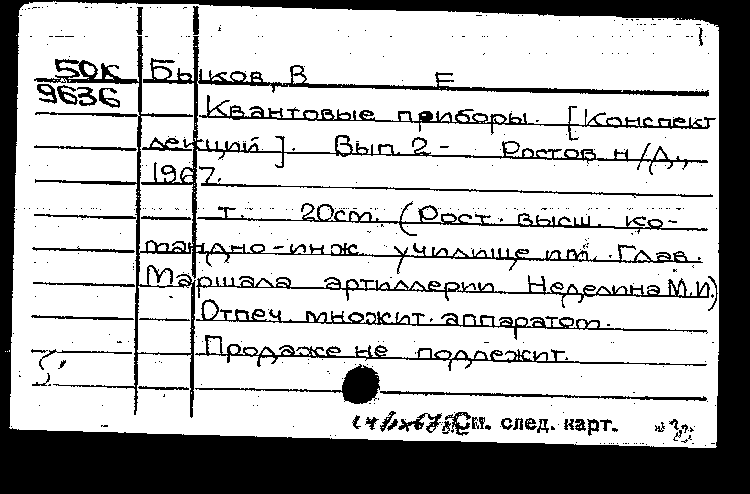 50К Быков, В Е
9636 Квантовые приборы. [Конспект
лекций]. Вып. 2 - Ростов н/Д.,
1967.
т. 20см. (Рост. высш. ко-
мандно-инж. училище им. Глав.
Маршала артиллерии Неделина М.И.)
Отпеч. множит. аппаратом.
Продаже не подлежит.
См. след. карт.